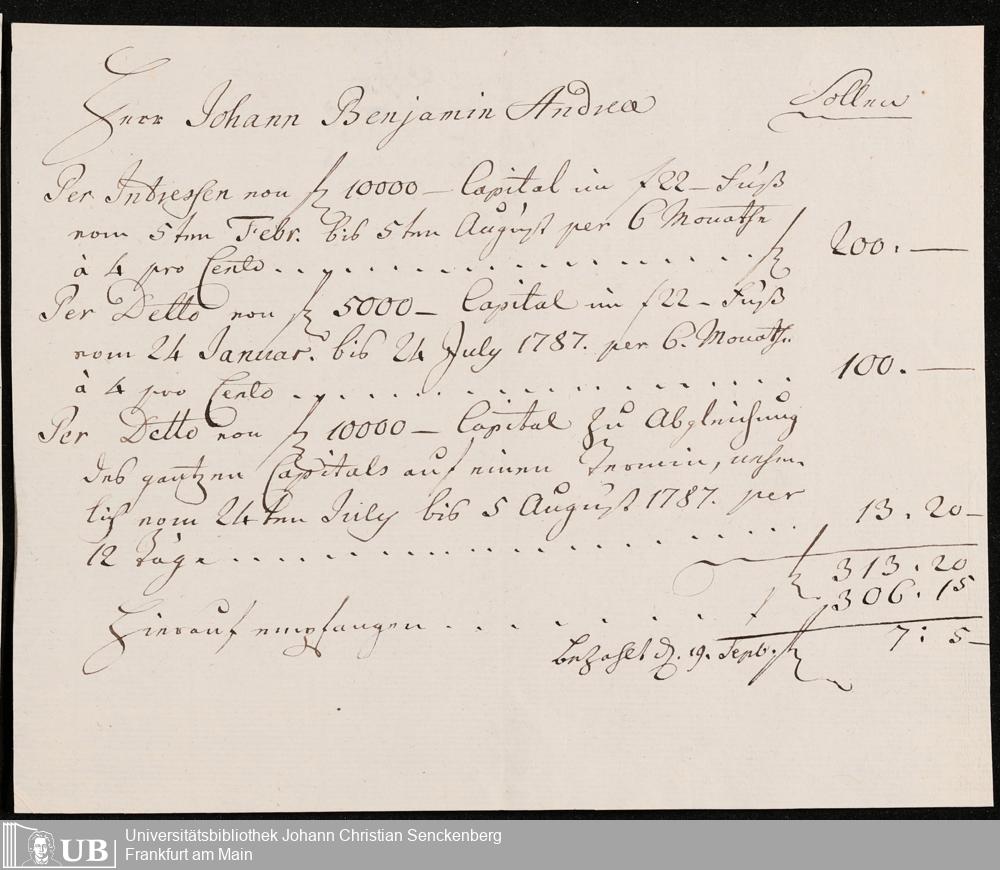 Herr Johann Benjamin Andreæ Sollen
Per Intressen von f 10000 – Capital im f 22 – Fuß
vom 5ten Febr. bis 5ten August per 6 Monathe
à 4 pro Cento . . . . . . . . . . . . . . . . . . f 200. —
Per Detto von f 5000 – Capital im f 22 – Fuß
vom 24 Januar. bis 24 July 1787. per 6. Monathe
à 4 pro Cento . . . . . . . . . . . . . . . . . . 100. —
Per Detto von f 10000 – Capital zu Abgleichung
des gantzen Capitals auf einen Termin, nehm-
lich vom 24ten July bis 5 August 1787. per
12 Täge . . . . . . . . . . . . . . . . . . 13. 20 –
f 313. 20
Hierauf empfangen . . . . . . . . . . f 306. 15
bezahlt d. 19. Septb. f 7: 5 –
UB
Universitätsbibliothek Johann Christian Senckenberg
Frankfurt am Main